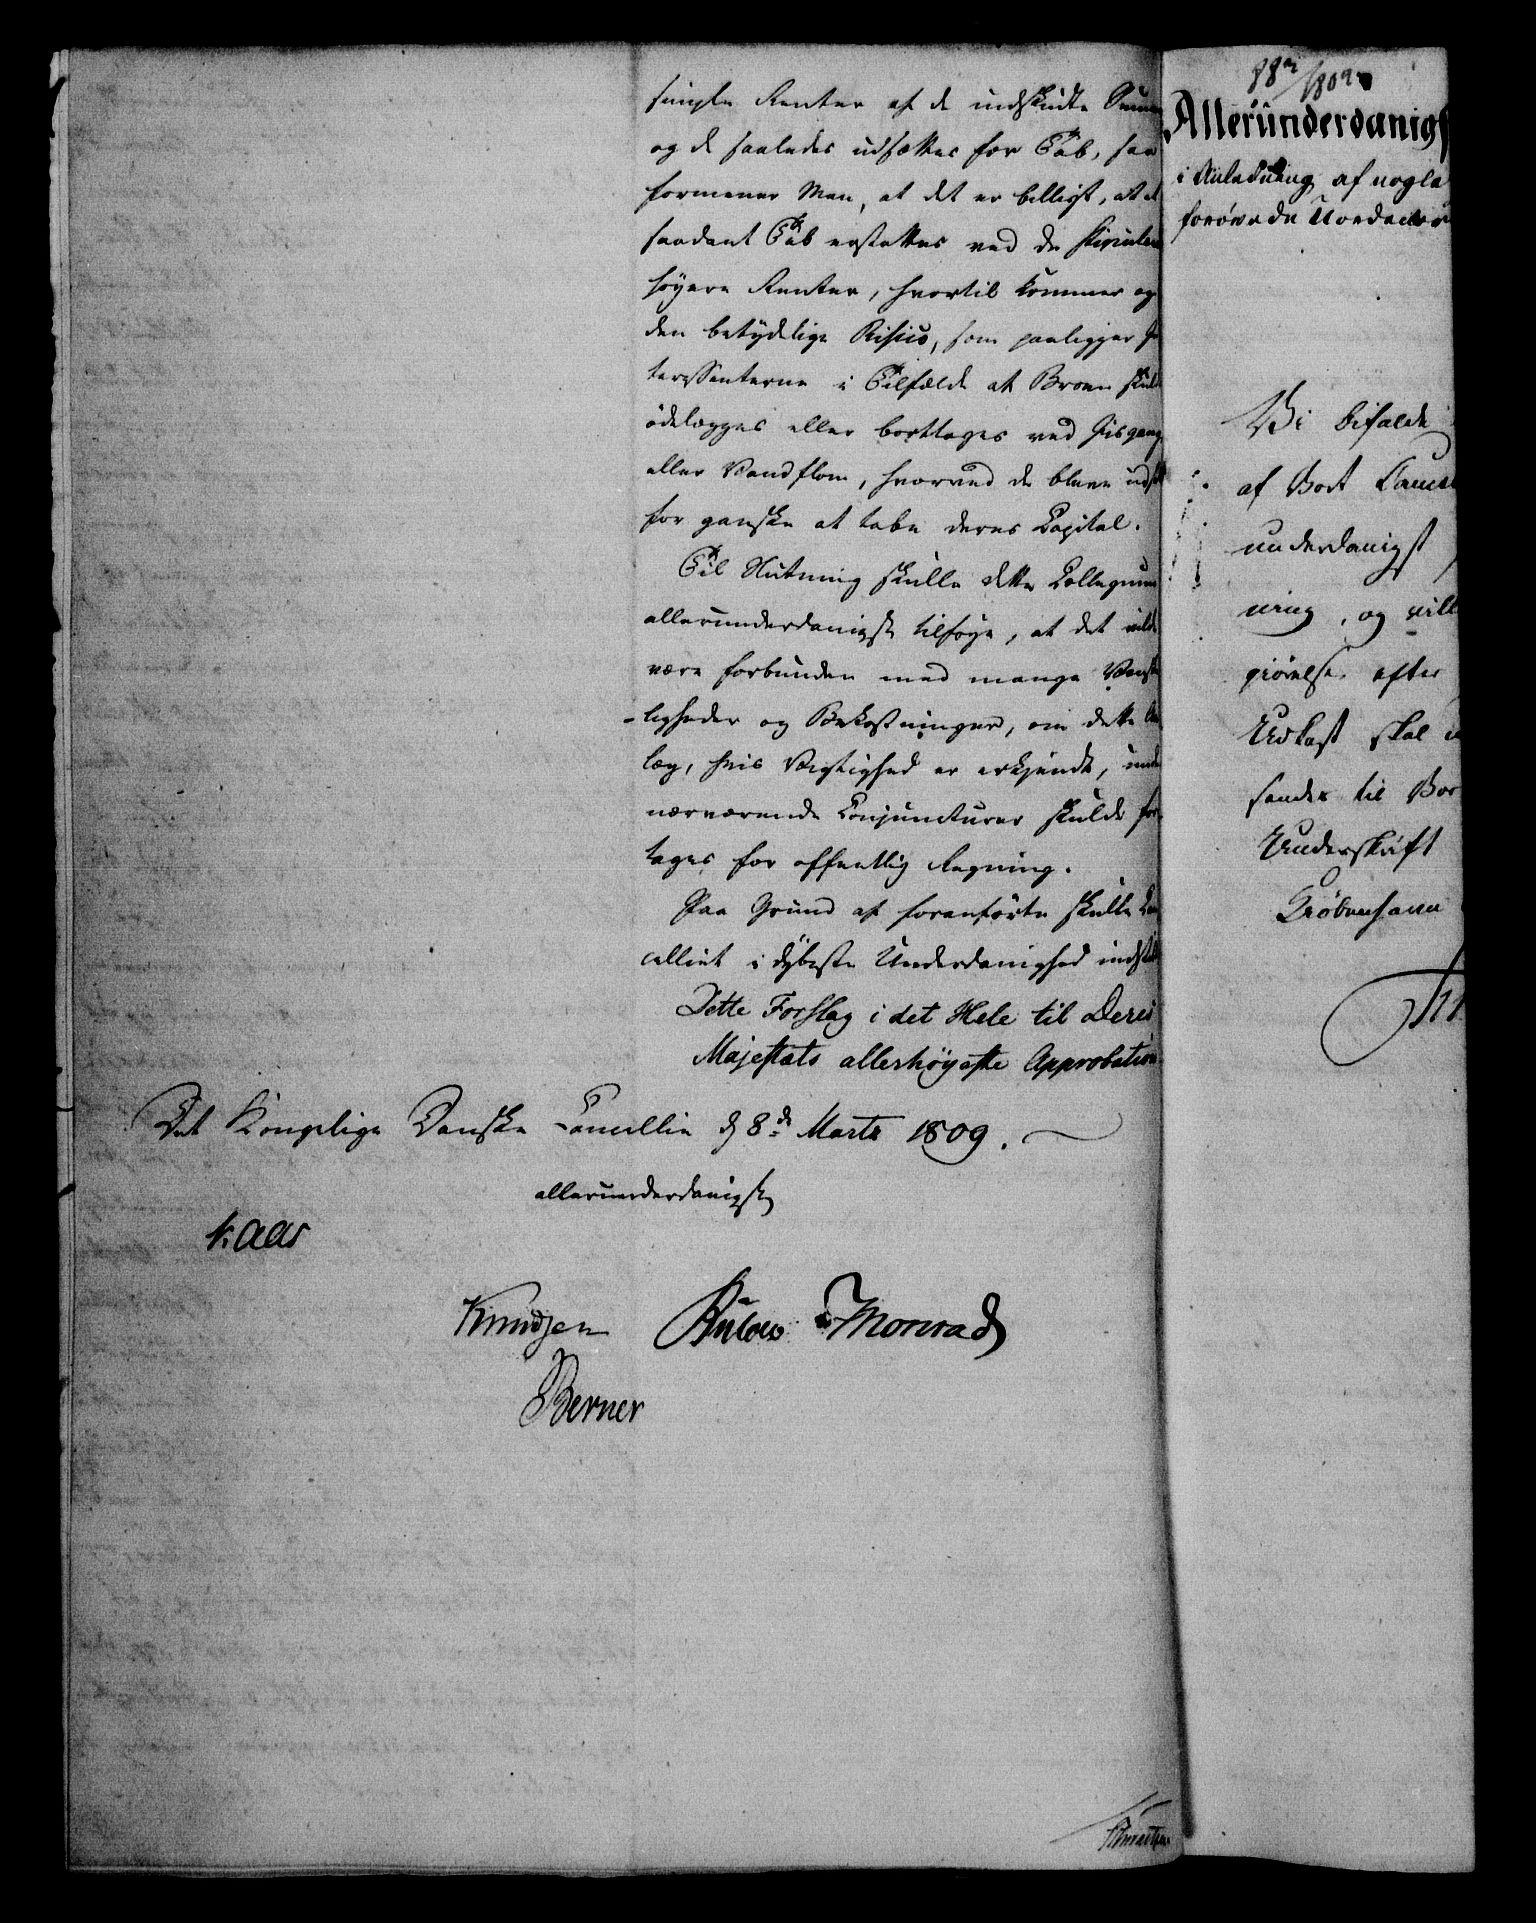 simple Renter af de indskudte Summer
og de saaledes udsættes for Tab, saa
formener Man, at det er billigt, at et
saadant Tab erstattes ved de stipulerede
høyere Renter, hvortil kommer og
den betydelige Risico, som paaligger In
teressenterne i Tilfælde at Broen skulde
ødelægges eller borttages ved Iisgang
eller Vandflom, hvorved de bleve udsat
for ganske at tabe deres Capital.
Til Slutning skulle dette Collegium
allerunderdanigst tilføye, at det vilde
være forbunden med mange Vanske
ligheder og Bekostninger, om dette An
læg, hvis Vigtighed er erkjendt, under
nærværende Conjuncturer skulde fore
tages for offentlig Regning.
Paa Grund af foranførte skulle Can
celliet i dybeste Underdanighed indstille
Dette Forslag i det Hele til Deres
Majestæts allerhøyeste Approbation
Det Kongelige Danske Cancellie d 8de Marts 1809.
allerunderdanigst
Kaas
Knudsen Bülow Monrad
Berner
1809
Allerunderdanigs
i Anledning af nogle
forøvede Uordener
Vi bifalde
af Vort Cancel
underdanigst
ning, og vill
giørelse efter
Udkast skal
sendes til Vor
Underskrift
Kiøbenhavn